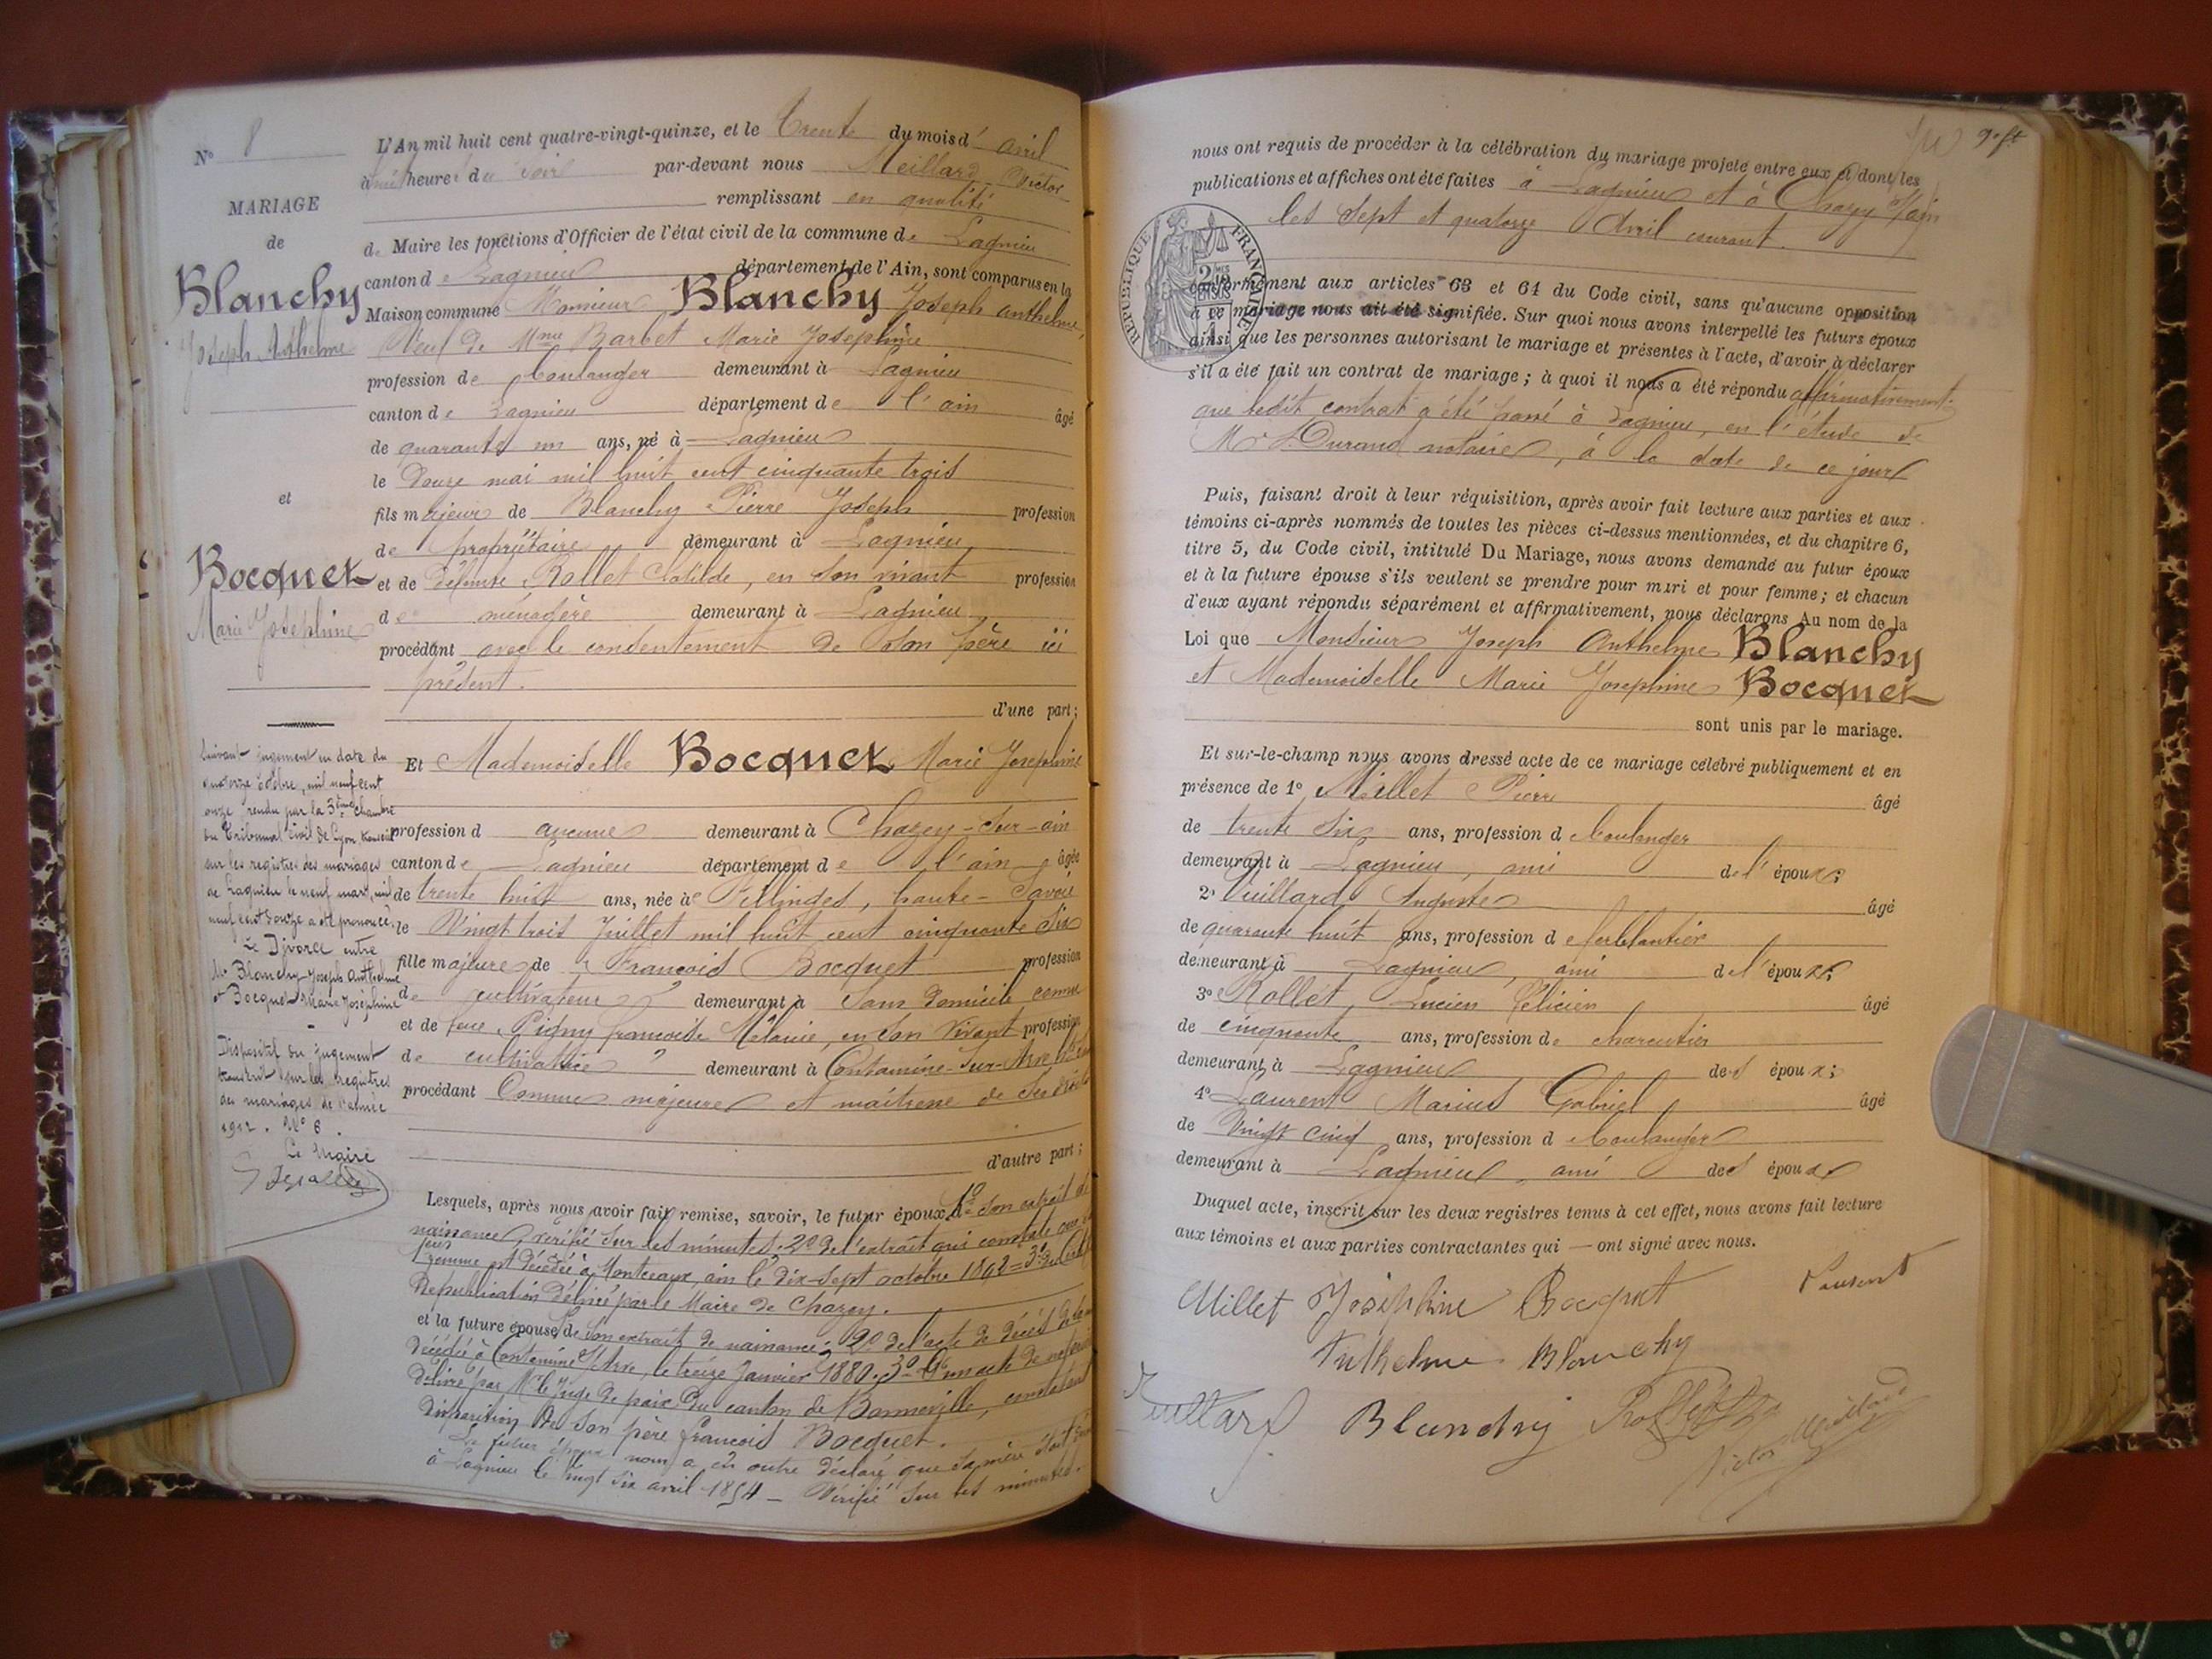 N° 8
MARIAGE
de
Blanchy
Joseph Anthelme
et
Bocquet
Marie Joséphine
Suivant jugement en date du
quatorze Octobre, mil neuf cent
onze rendu par la 3ème Chambre
du Tribunal civil de Lyon transcrit
sur les registres des mariages
de Lagnieu le neuf mars, mil
neuf cent douze a été prononcé
Le Divorce entre
Mr Blanchy Joseph Anthelme
et Bocquet Marie Joséphine
Dispositif du jugement
transcrit sur les registres
des mariages de l'année
1912. N° 6.
Le Maire
L'An mil huit cent quatre-vingt-quinze, et le trente du mois d' avril
à heures du soir par-devant nous Meillard Victor
remplissant en qualité
de Maire les fonctions d'Officier de l'état civil de la commune de Lagnieu
canton de Lagnieu département de l'Ain, sont comparus en la
Maison commune Monsieur Blanchy Joseph anthelme,
Veuf de Mme Barbet Marie Josephine
profession de boulanger demeurant à Lagnieu
canton de Lagnieu département de l'ain âgé
de quarante un ans, né à Lagnieu
le douze mai mil huit cent cinquante trois
fils majeur de Blanchy Pierre Joseph profession
de propriétaire demeurant à Lagnieu
et de défunte Rollet Clotilde, en son vivant profession
de ménagère demeurant à Lagnieu,
procédant avec le consentement de son père ici
présent.
d'une part;
Et Mademoiselle Bocquet Marie Josephine
profession d aucune demeurant à Chazey-sur-ain
canton de Lagnieu département de l'ain âgée
de trente huit ans, née à Fillinges, haute-Savoie
le Vingt trois Juillet mil huit cent cinquante six
fille majeure de François Bocquet profession
de cultivateur demeurant à Sans domicile connu
et de feue Pigny françoise Mélanie, en son vivant profession
de cultivatrice demeurant à Contamine-sur-Arve
procédant Comme majeure et maîtresse de ses droits
d'autre part;
Lesquels, après nous avoir fait remise, savoir, le futur époux 1° de son extrait de
naissance vérifié sur les minutes; 2° de l'extrait qui constate que sa
femme est décédée à Montceaux, ain le dix-sept octobre 1892 = 3° du Certif
De publication délivré par le Maire de Chazey.
et la future épouse de son extrait de naissance; 2° de l'acte de décès de
décédée à Contamine s/Arve, le treize Janvier 1880; 3° d'un acte de notoriété
délivré par Mr le Juge de paix du canton de Bonneville, constatant
disparition de son père françois Bocquet.
Le futur époux nous a en outre déclaré que sa mère était
à Lagnieu le vingt six avril 1854 - Vérifié sur les minutes.
nous ont requis de procéder à la célébration du mariage projeté entre eux et dont les
publications et affiches ont été faites à Lagnieu et à Chazey s/ain
les sept et quatorze Avril courant.
RÉPUBLIQUE FRANÇAISE
conformément aux articles 63 et 64 du Code civil, sans qu'aucune opposition
à ce mariage nous ait été signifiée. Sur quoi nous avons interpellé les futurs époux
ainsi que les personnes autorisant le mariage et présentes à l'acte, d'avoir à déclarer
s'il a été fait un contrat de mariage; à quoi il nous a été répondu affirmativement;
que ledit contrat a été passé à Lagnieu, en l'étude de
Me Durand notaire, à la date de ce jour
Puis, faisant droit à leur réquisition, après avoir fait lecture aux parties et aux
témoins ci-après nommés de toutes les pièces ci-dessus mentionnées, et du chapitre 6,
titre 5, du Code civil, intitulé Du Mariage, nous avons demandé au futur époux
et à la future épouse s'ils veulent se prendre pour mari et pour femme; et chacun
d'eux ayant répondu séparément et affirmativement, nous déclarons Au nom de la
Loi que Monsieur Joseph Anthelme Blanchy
et Mademoiselle Marie Josephine Bocquet
sont unis par le mariage.
Et sur-le-champ nous avons dressé acte de ce mariage célébré publiquement et en
présence de 1° Millet Pierre âgé
de trente six ans, profession d boulanger
demeurant à Lagnieu, ami de l' époux;
2° Vuillard Auguste âgé
de quarante huit ans, profession d e ferblantier
demeurant à Lagnieu, ami de l' époux;
3° Rollet, Lucien Félicien âgé
de cinquante ans, profession de charcutier
demeurant à Lagnieu des époux;
4° Laurent Marius Gabriel âgé
de Vingt cinq ans, profession d boulanger
demeurant à Lagnieu, ami des époux
Duquel acte, inscrit sur les deux registres tenus à cet effet, nous avons fait lecture
aux témoins et aux parties contractantes qui — ont signé avec nous.
Millet Joséphine Bocquet Laurent
Anthelme Blanchy
Vuillard Blanchy Rollet
Victor Meillard